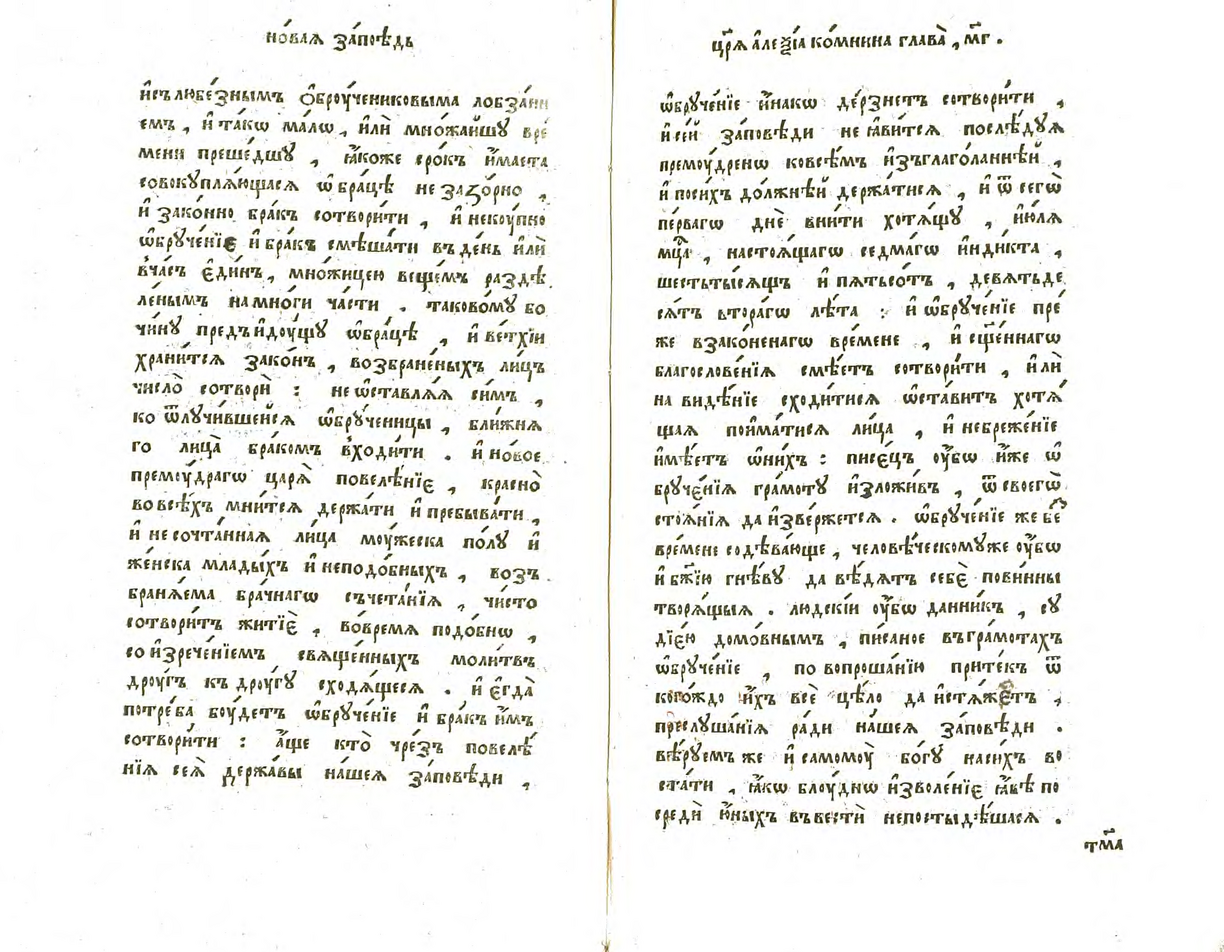 но́вая за́повѣдь
и҆съ любе́знымъ ѻ҆броу́чениковыма лобза́ни
емъ, и҆ та́кѡ ма́лѡ, и҆лѝ мно́жайшꙋ вре́
мени преше́дшꙋ, ꙗ҆́коже сро́къ и҆́маста
совокꙋпля́ющася ѡ҆ бра́цѣ не за́ꙁорно,
и҆ зако́нно бра́къ сотвори́ти, и҆ некоу́пно
ѡ҆брꙋче́нїе и҆ бра́къ смѣша́ти въ де́нь и҆лѝ
вча́съ є҆ди́нъ, мно́жицею веще́мъ раздѣ
ле́нымъ на мно́ги ча́сти. таково́мꙋ бо
чи́нꙋ предъидоу́щꙋ ѡ҆бра́цѣ, и҆ ве́тхїи
храни́тся зако́нъ, возбране́ныхъ ли́цъ
число̀ сотворѝ: не ѡ҆ставля́я си́мъ,
ко ѿлꙋчи́вшейся ѡ҆брꙋ́ченицы, бли́жня
го лица̀ бра́комъ в̾ходи́ти. и҆ но́вое
премоу́драгѡ царя̀ повелѣ́нїе, красно̀
во всѣ́хъ мни́тся держа́ти и҆ пребыва́ти,
и҆ не сочта́нная ли́ца моу́жеска по́лꙋ и҆
же́нска млады́хъ и҆ неподо́бныхъ, возъ
браня́ема бра́чнагѡ съчета́нїя, чи́сто
сотвори́тъ житїѐ, во́время подо́бнѡ,
со и҆зрече́нїемъ свяще́нныхъ моли́твъ
дроу́гъ къ дроу́гꙋ сходя́щеся. и҆ є҆гда̀
потре́ба боу́детъ ѡ҆брꙋче́нїе и҆ бра́къ и҆́мъ
сотвори́ти: а҆́ще кто̀ чре́зъ повелѣ́
нїя сея̀ держа́вы на́шея за́повѣди,
цр҃я а҆ле́ѯїа ко́мнина глава̀, мг҃.
ѡ҆брꙋче́нїе и҆́накѡ де́рзнетъ сотвори́ти,
и҆ се́й за́повѣди не ꙗ҆ви́тся послѣ́дꙋя
премоу́дренѡ ковсѣ́мъ и҆зъглаго́ланнѣй,
и҆ поси́хъ до́лжнѣй держа́тися, и҆ ѿ сегѡ̀
пе́рвагѡ днѐ вни́ти хотя́щꙋ, и҆ю́ля
мц҃а, настоя́щагѡ седма́гѡ и҆нди́кта,
шестьты́сящъ и҆ пя́тьсо́тъ, девя́тьде
ся́тъ втора́гѡ лѣ́та: и҆ ѡ҆брꙋче́нїе пре́
же взако́ненагѡ вре́мене, и҆ сщ҃е́ннагѡ
благослове́нїя смѣ́етъ сотвори́ти, и҆лѝ
на ви́дѣнїе сходи́тися ѡ҆ста́витъ хотя́
щая пойма́тися ли́ца, и҆ небреже́нїе
и҆мѣ́етъ ѡ҆ни́хъ: писе́цъ оу҆́бѡ и҆́же ѡ҆
брꙋче́нїя гра́мотꙋ и҆зложи́въ, ѿ своегѡ̀
стоя́нїя да и҆зве́ржется. ѡ҆брꙋче́нїе же бе
вре́мене содѣва́юще, человѣ́ческомꙋже оу҆́бѡ
и҆ бж҃їю гнѣ́вꙋ да вѣ́дятъ себѐ пови́нны
творя́щыя. людскі́и оу҆́бѡ да́нникъ, сꙋ
дїе́ю домо́внымъ, пи́саное въ гра́мотахъ
ѡ҆брꙋче́нїе, по вопроша́нїю прите́къ ѿ
коего́ждо и҆́хъ всѐ цѣ́ло да и҆стя́жетъ,
преслꙋша́нїя ра́ди на́шея за́повѣди.
вѣ́рꙋемъ же и҆ самомоу̀ бо́гꙋ наси́хъ во
ста́ти, ꙗ҆́кѡ блоу́днѡ и҆зволе́нїе ꙗ҆́вѣ по
средѝ ю҆́ныхъ въвестѝ непостыдѣ́шася.
тма̀